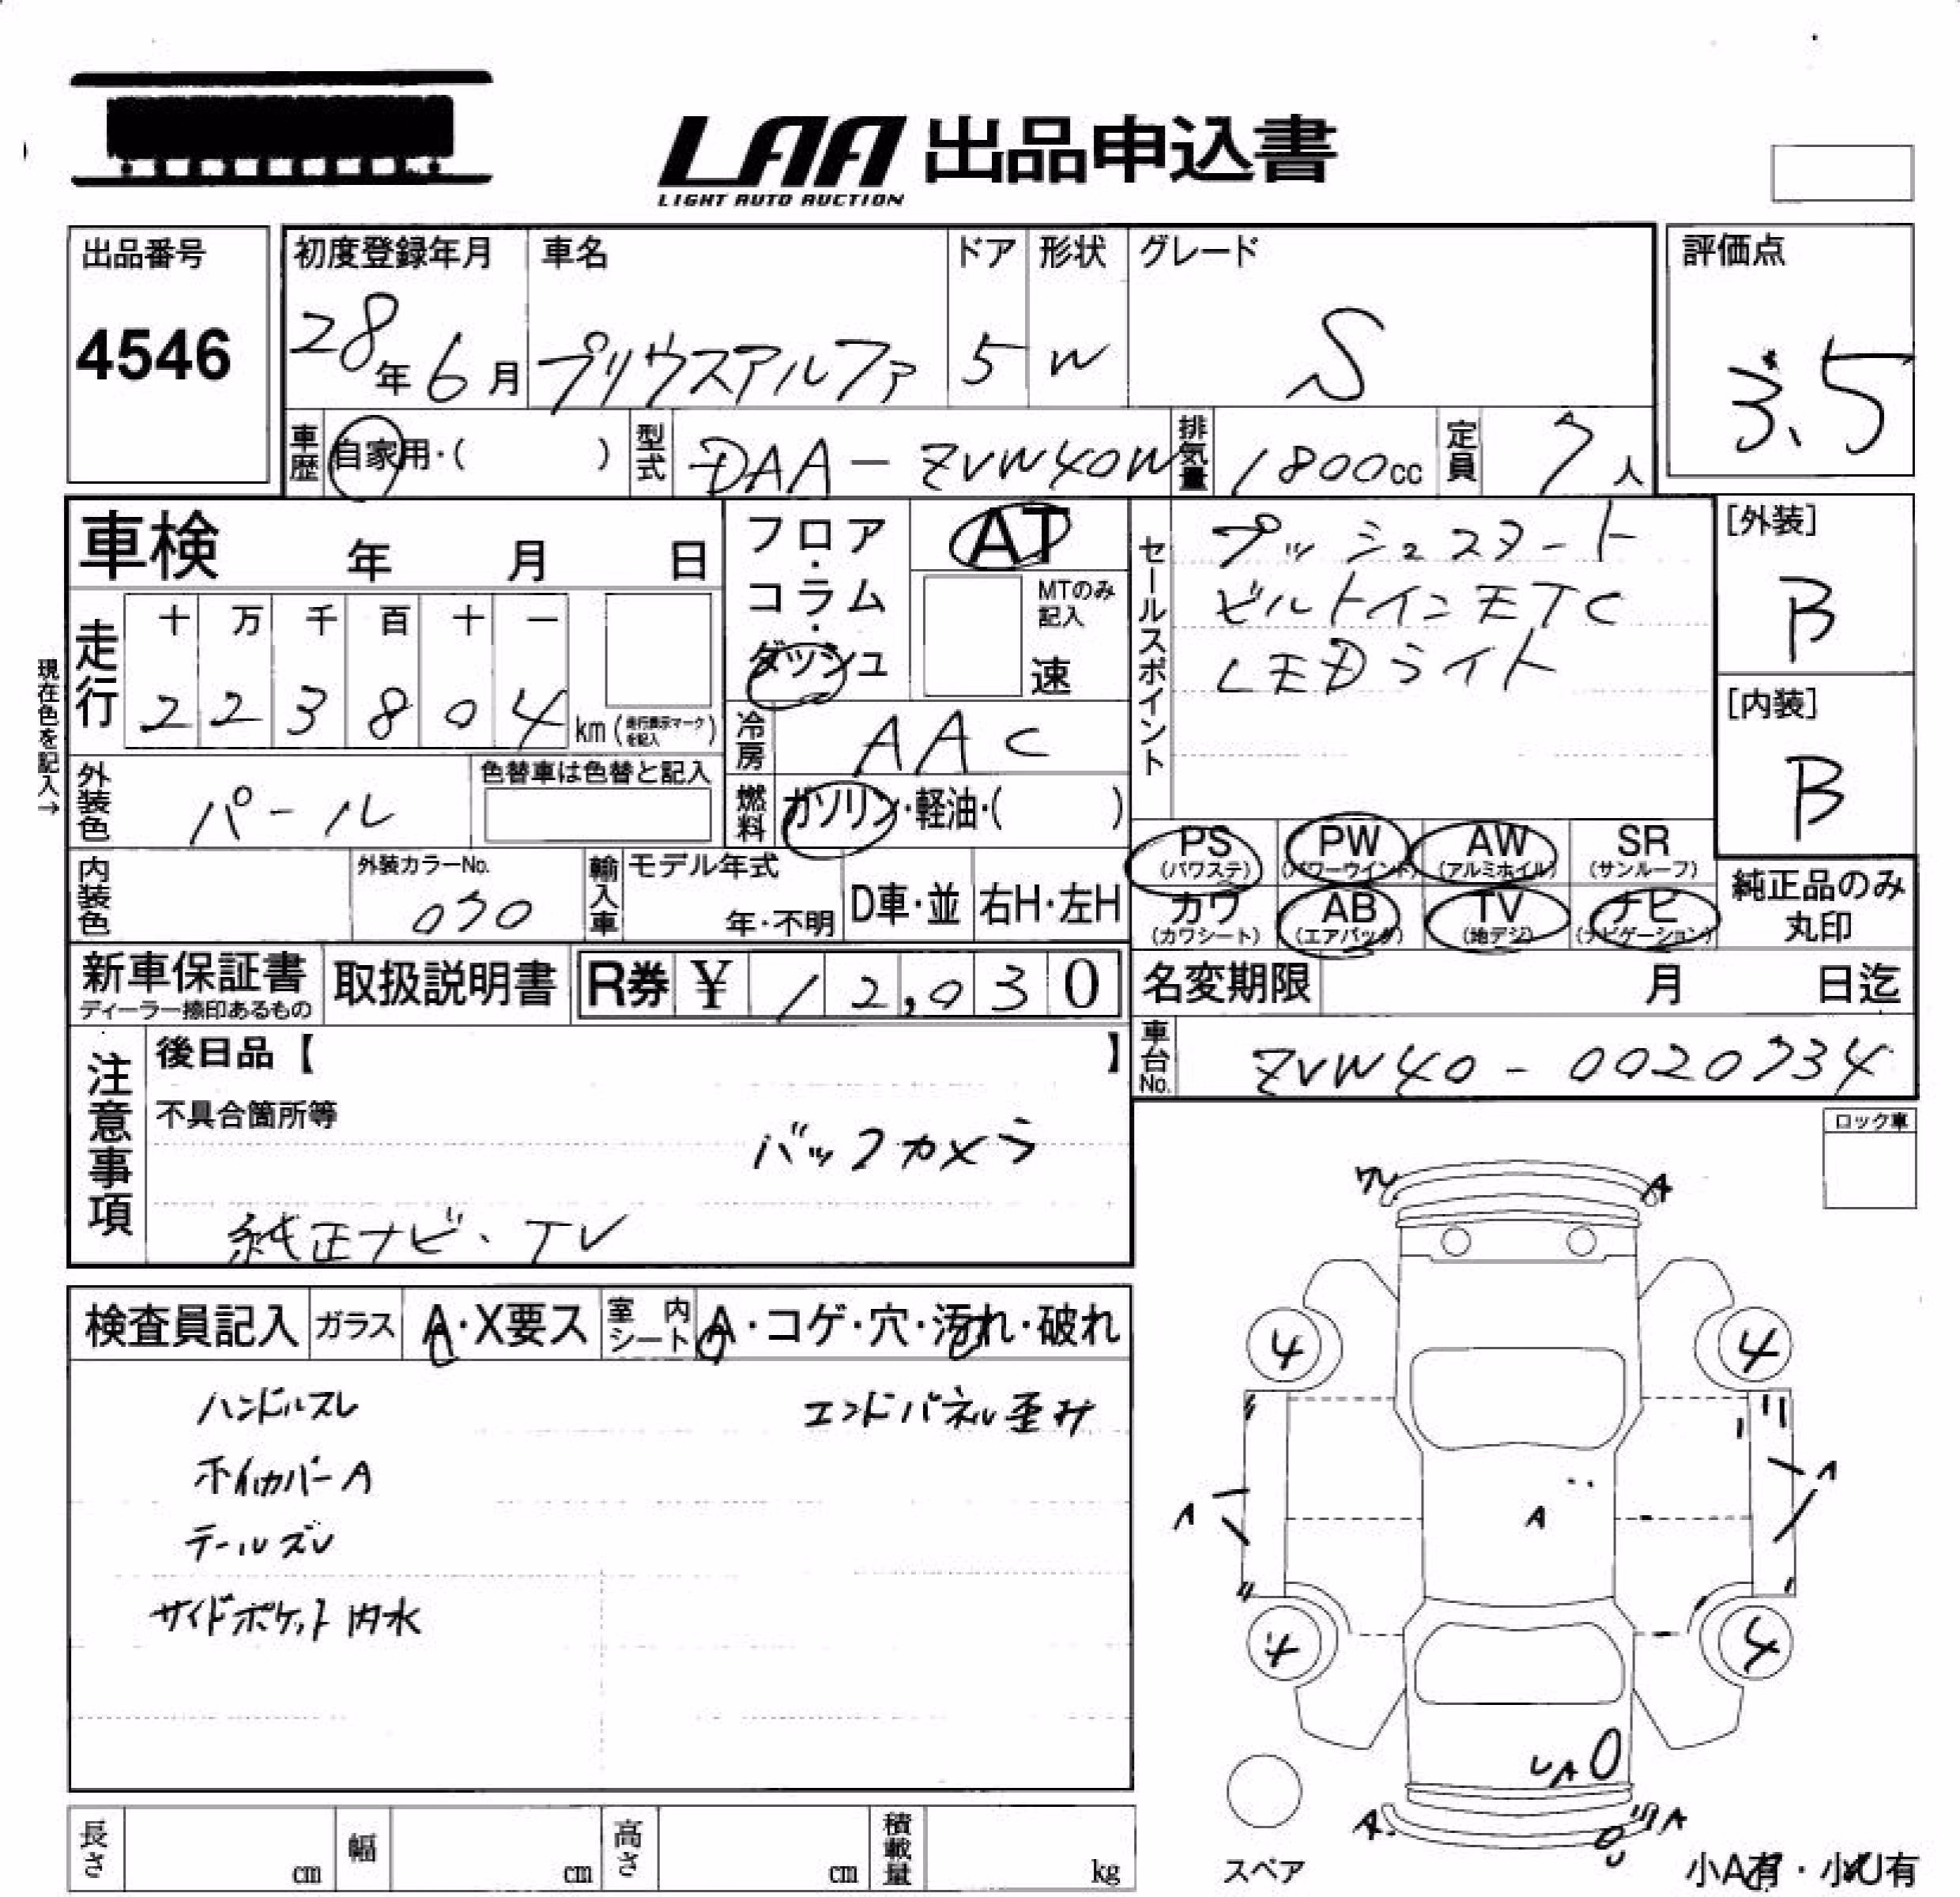 LAA 出品申込書
LIGHT AUTO AUCTION
出品番号
4546
初度登録年月
28年6月
車名
プリウスアルファ
ドア
5
形状
W
グレード
S
評価点
3.5
車歴 自家用・( )
型式 DAA-ZVW40W
排気量 1800cc
定員 7人
車検 年 月 日
走行
十 万 千 百 十 一
2 2 3 8 0 4 km (走行表示マークを記入)
現在色を記入→
外装色 パール
色替車は色替と記入
内装色
外装カラーNo.
070
輸入車 モデル年式
年・不明
D車・並
右H・左H
フロア・コラム・ダッシュ
AT
MTのみ記入
速
冷房 AAC
燃料 ガソリン・軽油・( )
セールスポイント
プッシュスタート
ビルトインETC
LEDライト
[外装]
B
[内装]
B
PS (パワステ)
PW (パワーウインド)
AW (アルミホイル)
SR (サンルーフ)
カワ (カワシート)
AB (エアバック)
TV (地デジ)
ナビ (ナビゲーション)
純正品のみ
丸印
新車保証書
ディーラー捺印あるもの
取扱説明書
R券 ¥ 12,030
名変期限 月 日迄
車台No. ZVW40-0020734
注意事項
後日品【 】
不具合箇所等
バックカメラ
純正ナビ・TV
ロック車
検査員記入
ガラス A・X要ス
室内シート A・コゲ・穴・汚れ・破れ
ハンドルスレ
エンドパネル歪み
ホイルカバーA
テールズレ
サイドポケット内水
ワレ
A
4
4
A
A
A
4
4
UA
A
A
スペア
小A有・小U有
長さ cm
幅 cm
高さ cm
積載量 kg